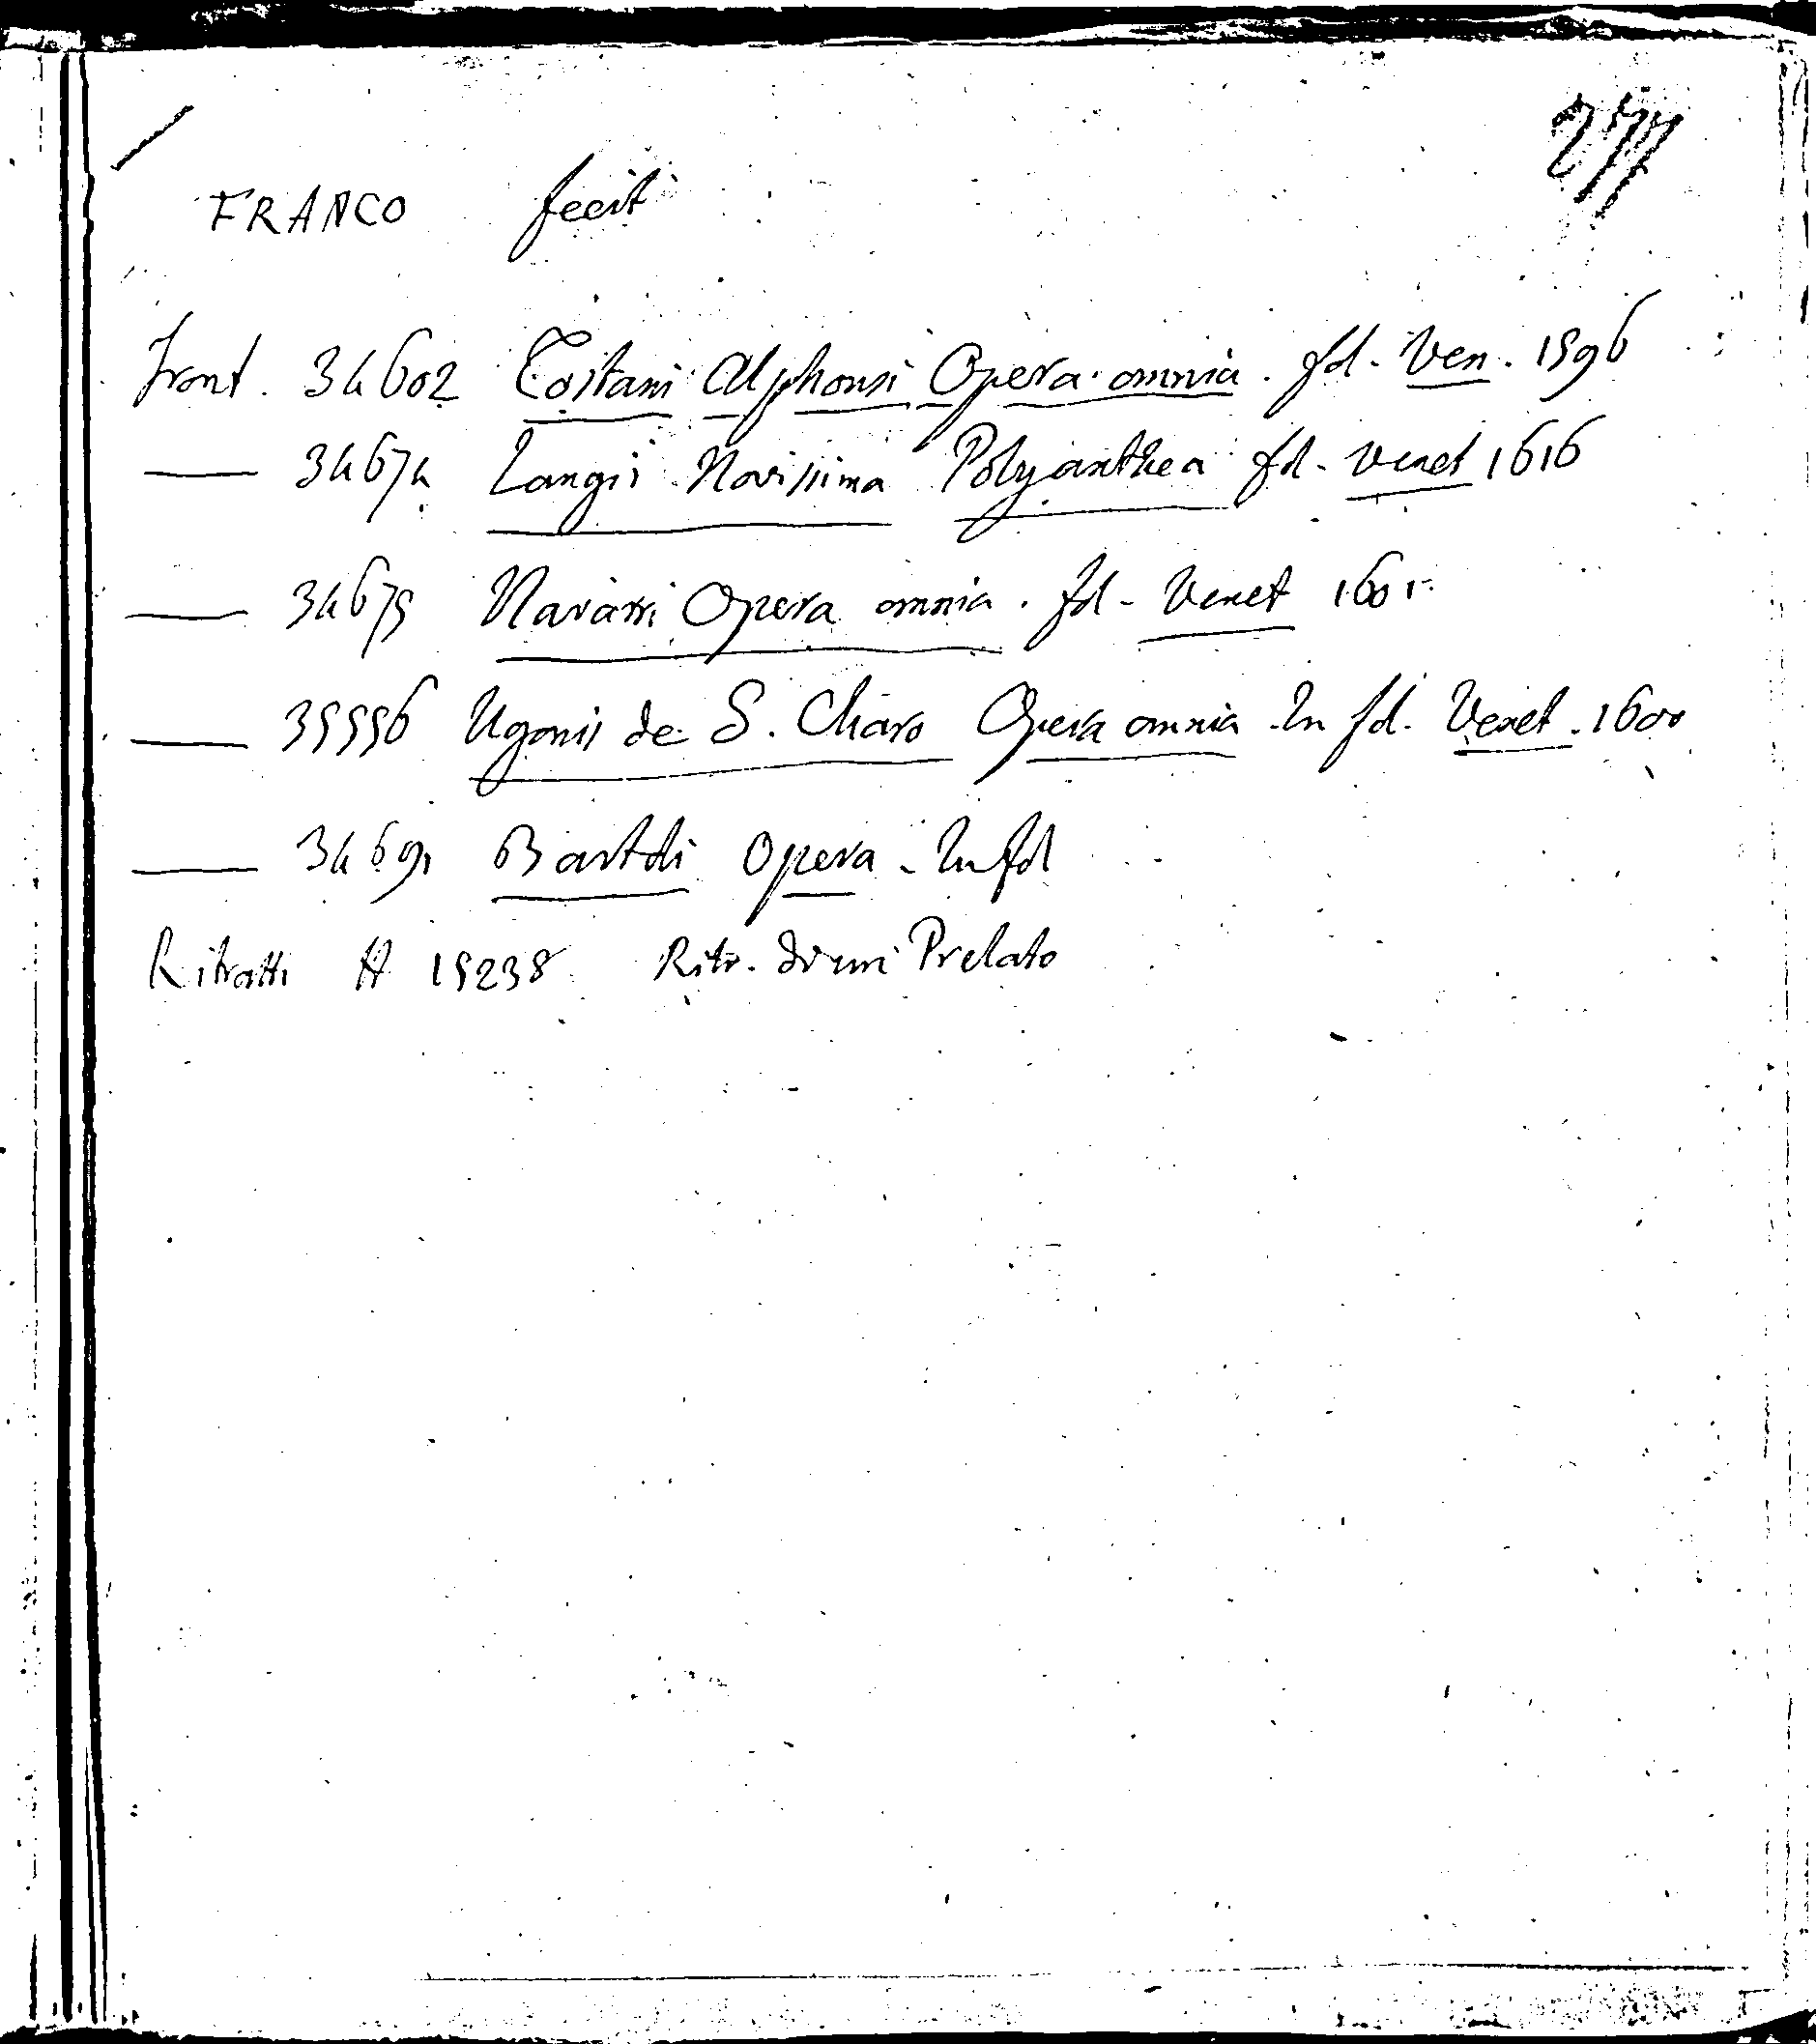 277
FRANCO fecit
Front. 34602 Tostani Alphonsi Opera omnia. fol. Ven. 1596
— 34674 Langii Novissima Polyanthea fol. Venet 1616
— 34675 Navarri Opera omnia. fol. Venet 1601
— 35556 Ugonis de S. Charo Opera omnia. In fol. Venet. 1600
— 34691 Bartoli Opera. In fol
Ritratti H 15238 Ritr. di un Prelato